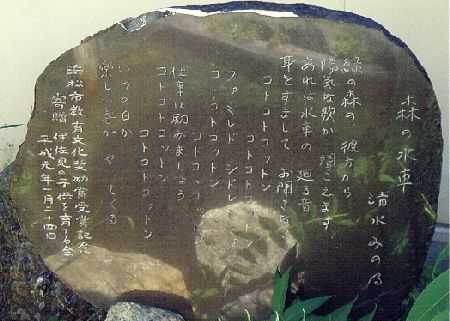 森の水車
清水みのる
緑の森の 彼方から
陽気な歌が 聞こえます
あれは水車の 廻る音
耳をすまして お聞きなさい
コトコトコットン
コトコトコットン
ファミレド シドレミ
コトコトコットン
コトコトコットン
仕事に励みましょう
コトコトコットン
コトコトコットン
いつの日か
楽しい春が やってくる
浜松市教育文化奨励賞受賞記念
寄贈 伊佐見の子供を育てる会
平成元年一月二十四日